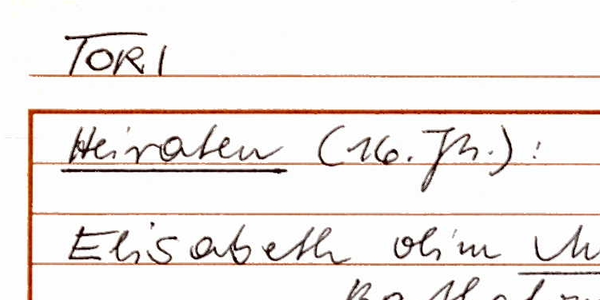 TORI
Heiraten (16. Jh.):
Elisabeth olim